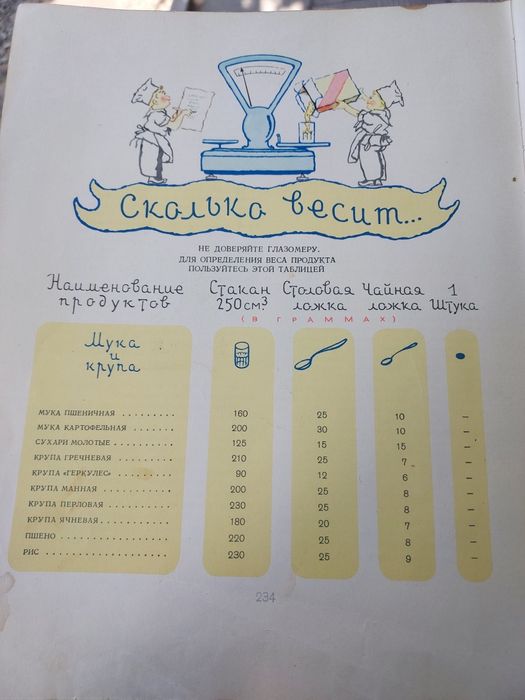 Сколько весит...
НЕ ДОВЕРЯЙТЕ ГЛАЗОМЕРУ.
ДЛЯ ОПРЕДЕЛЕНИЯ ВЕСА ПРОДУКТА
ПОЛЬЗУЙТЕСЬ ЭТОЙ ТАБЛИЦЕЙ
Наименование продуктов Стакан 250 см³ Столовая ложка Чайная ложка 1 Штука
(В ГРАММАХ)
Мука
и
крупа
МУКА ПШЕНИЧНАЯ ......... 160 25 10 –
МУКА КАРТОФЕЛЬНАЯ ........ 200 30 10 –
СУХАРИ МОЛОТЫЕ .......... 125 15 15 –
КРУПА ГРЕЧНЕВАЯ .......... 210 25 7 –
КРУПА «ГЕРКУЛЕС» .......... 90 12 6 –
КРУПА МАННАЯ ............ 200 25 8 –
КРУПА ПЕРЛОВАЯ ........... 230 25 8 –
КРУПА ЯЧНЕВАЯ ............ 180 20 7 –
ПШЕНО .................. 220 25 8 –
РИС .................... 230 25 9 –
234